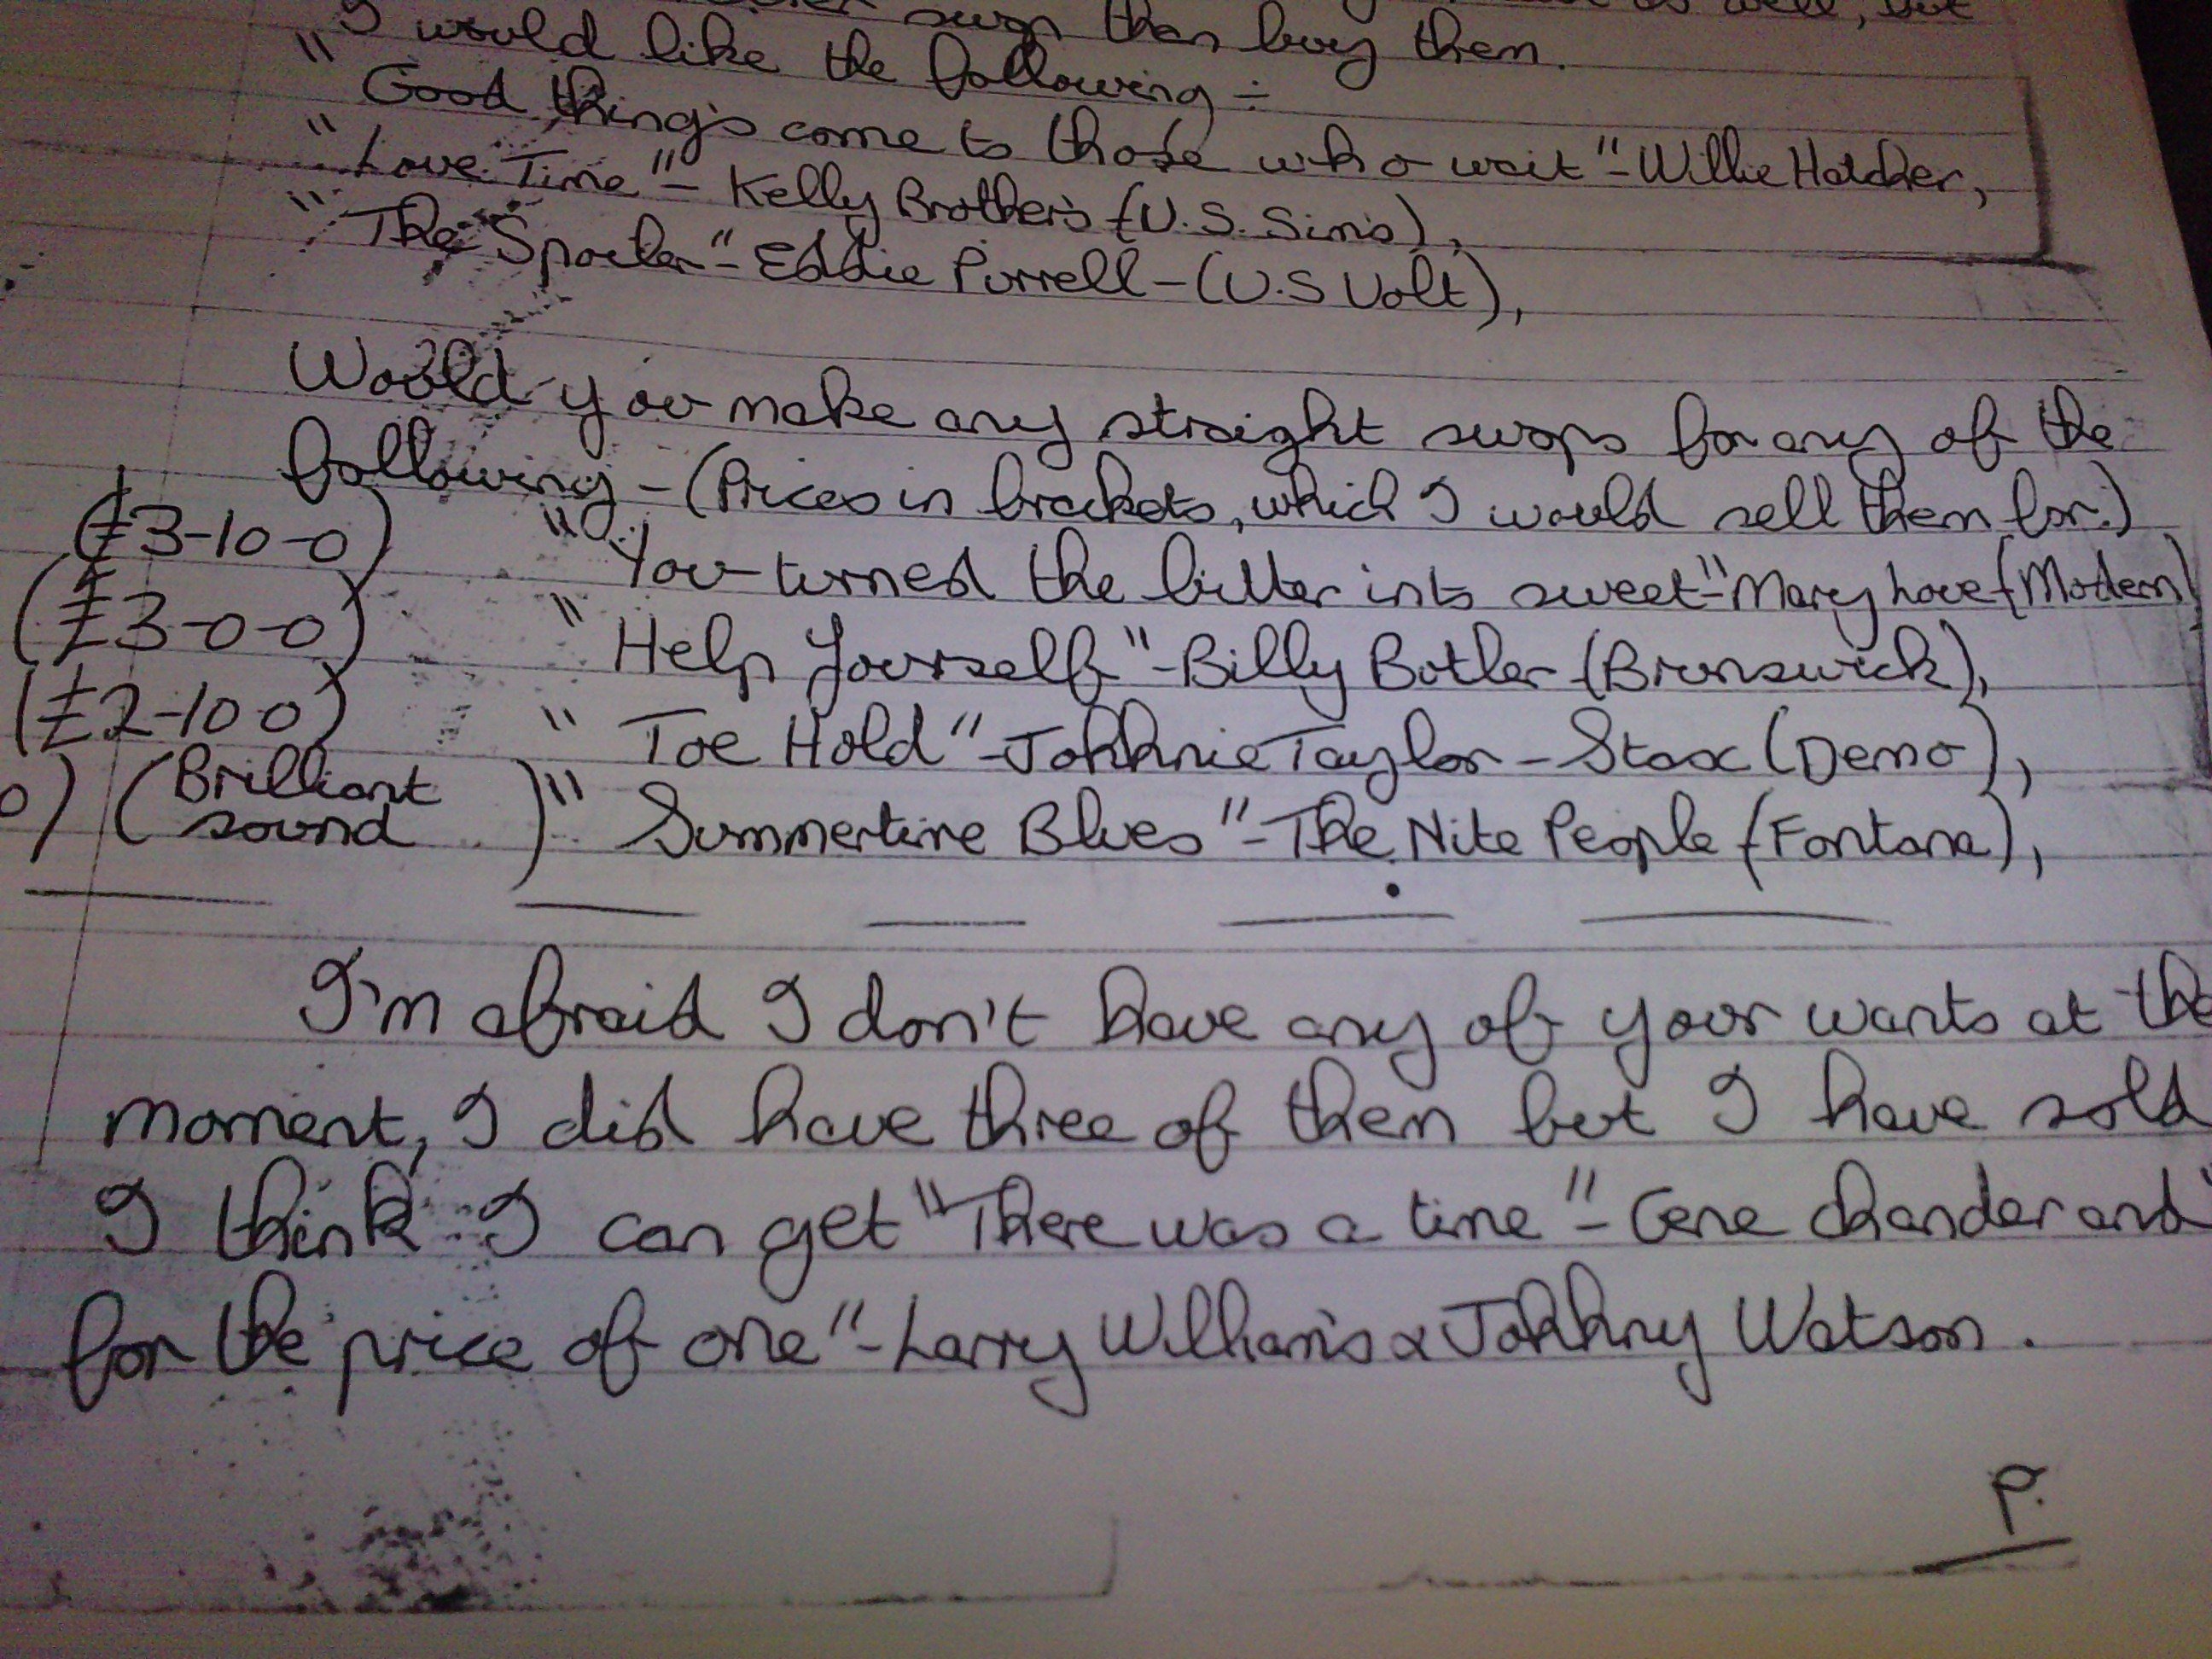 swop than buy them.
I would like the following :-
"Good things come to those who wait" - Willie Hatcher,
"Love Time" - Kelly Brothers (U.S. Sims),
"The Spoiler" - Eddie Purrell - (U.S Volt),
Would you make any straight swops for any of the
following - (Prices in brackets, which I would sell them for.)
(£3-10-0) "You turned the bitter into sweet" - Mary Love (Modern)
(£3-0-0) "Help Yourself" - Billy Butler (Brunswick),
(£2-10 0) "Toe Hold" - Johhnie Taylor - Stax (Demo),
0) (Brilliant sound) "Summertime Blues" - The Nite People (Fontana),
I'm afraid I don't have any of your wants at the
moment, I did have three of them but I have sold
I think I can get "There was a time" - Gene Chander and "
for the price of one" - Larry Williams & Johhny Watson.
P.